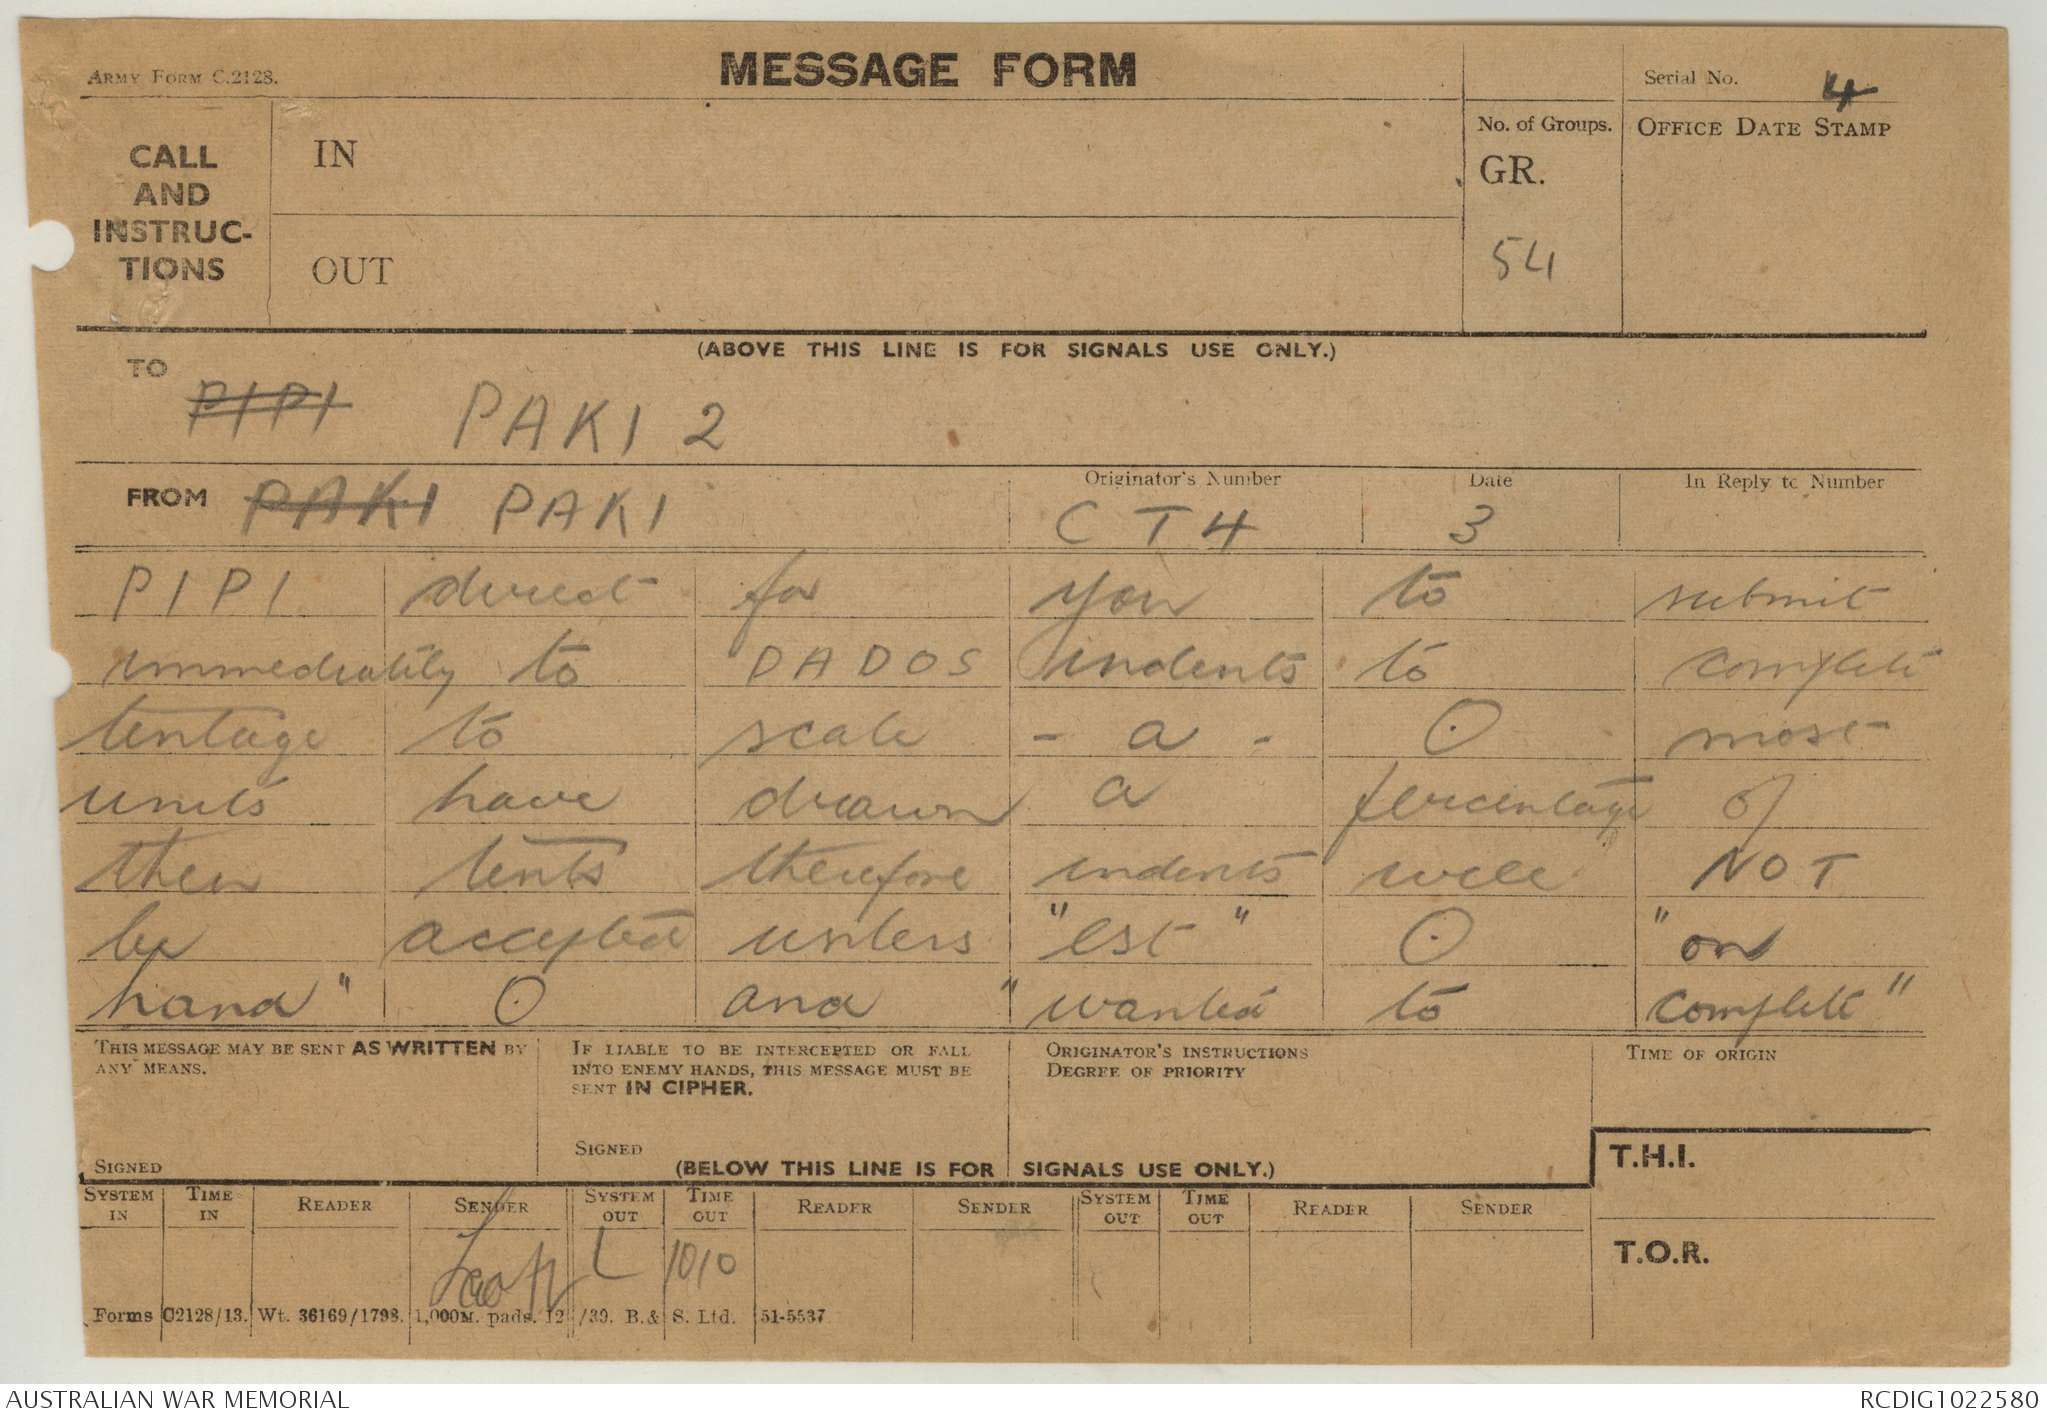 ARMY FORM C.2128.
MESSAGE FORM
Serial No. 4
CALL AND INSTRUC-TIONS
IN
OUT
No. of Groups.
GR.
54
OFFICE DATE STAMP
(ABOVE THIS LINE IS FOR SIGNALS USE ONLY.)
TO
PIPI PAKI 2
FROM PAKI PAKI
Originator's Number
CT4
Date
3
In Reply to Number
PIPI direct for you to submit
immediately to DADOS indents to complete
tentage to scale - a - ⊙ most
units have drawn a percentage of
their tents therefore indents will NOT
be accepted unless "est" ⊙ "on
hand" ⊙ and "wanted to complete"
THIS MESSAGE MAY BE SENT AS WRITTEN BY ANY MEANS.
SIGNED
IF LIABLE TO BE INTERCEPTED OR FALL INTO ENEMY HANDS, THIS MESSAGE MUST BE SENT IN CIPHER.
SIGNED
ORIGINATOR'S INSTRUCTIONS
DEGREE OF PRIORITY
TIME OF ORIGIN
(BELOW THIS LINE IS FOR SIGNALS USE ONLY.)
T.H.I.
T.O.R.
SYSTEM IN TIME IN READER SENDER SYSTEM OUT TIME OUT READER SENDER SYSTEM OUT TIME OUT READER SENDER
L 1010
Forms C2128/13. Wt. 36169/1798. 1,000M. pads. 12/39. B.& S. Ltd. 51-5537
AUSTRALIAN WAR MEMORIAL
RCDIG1022580